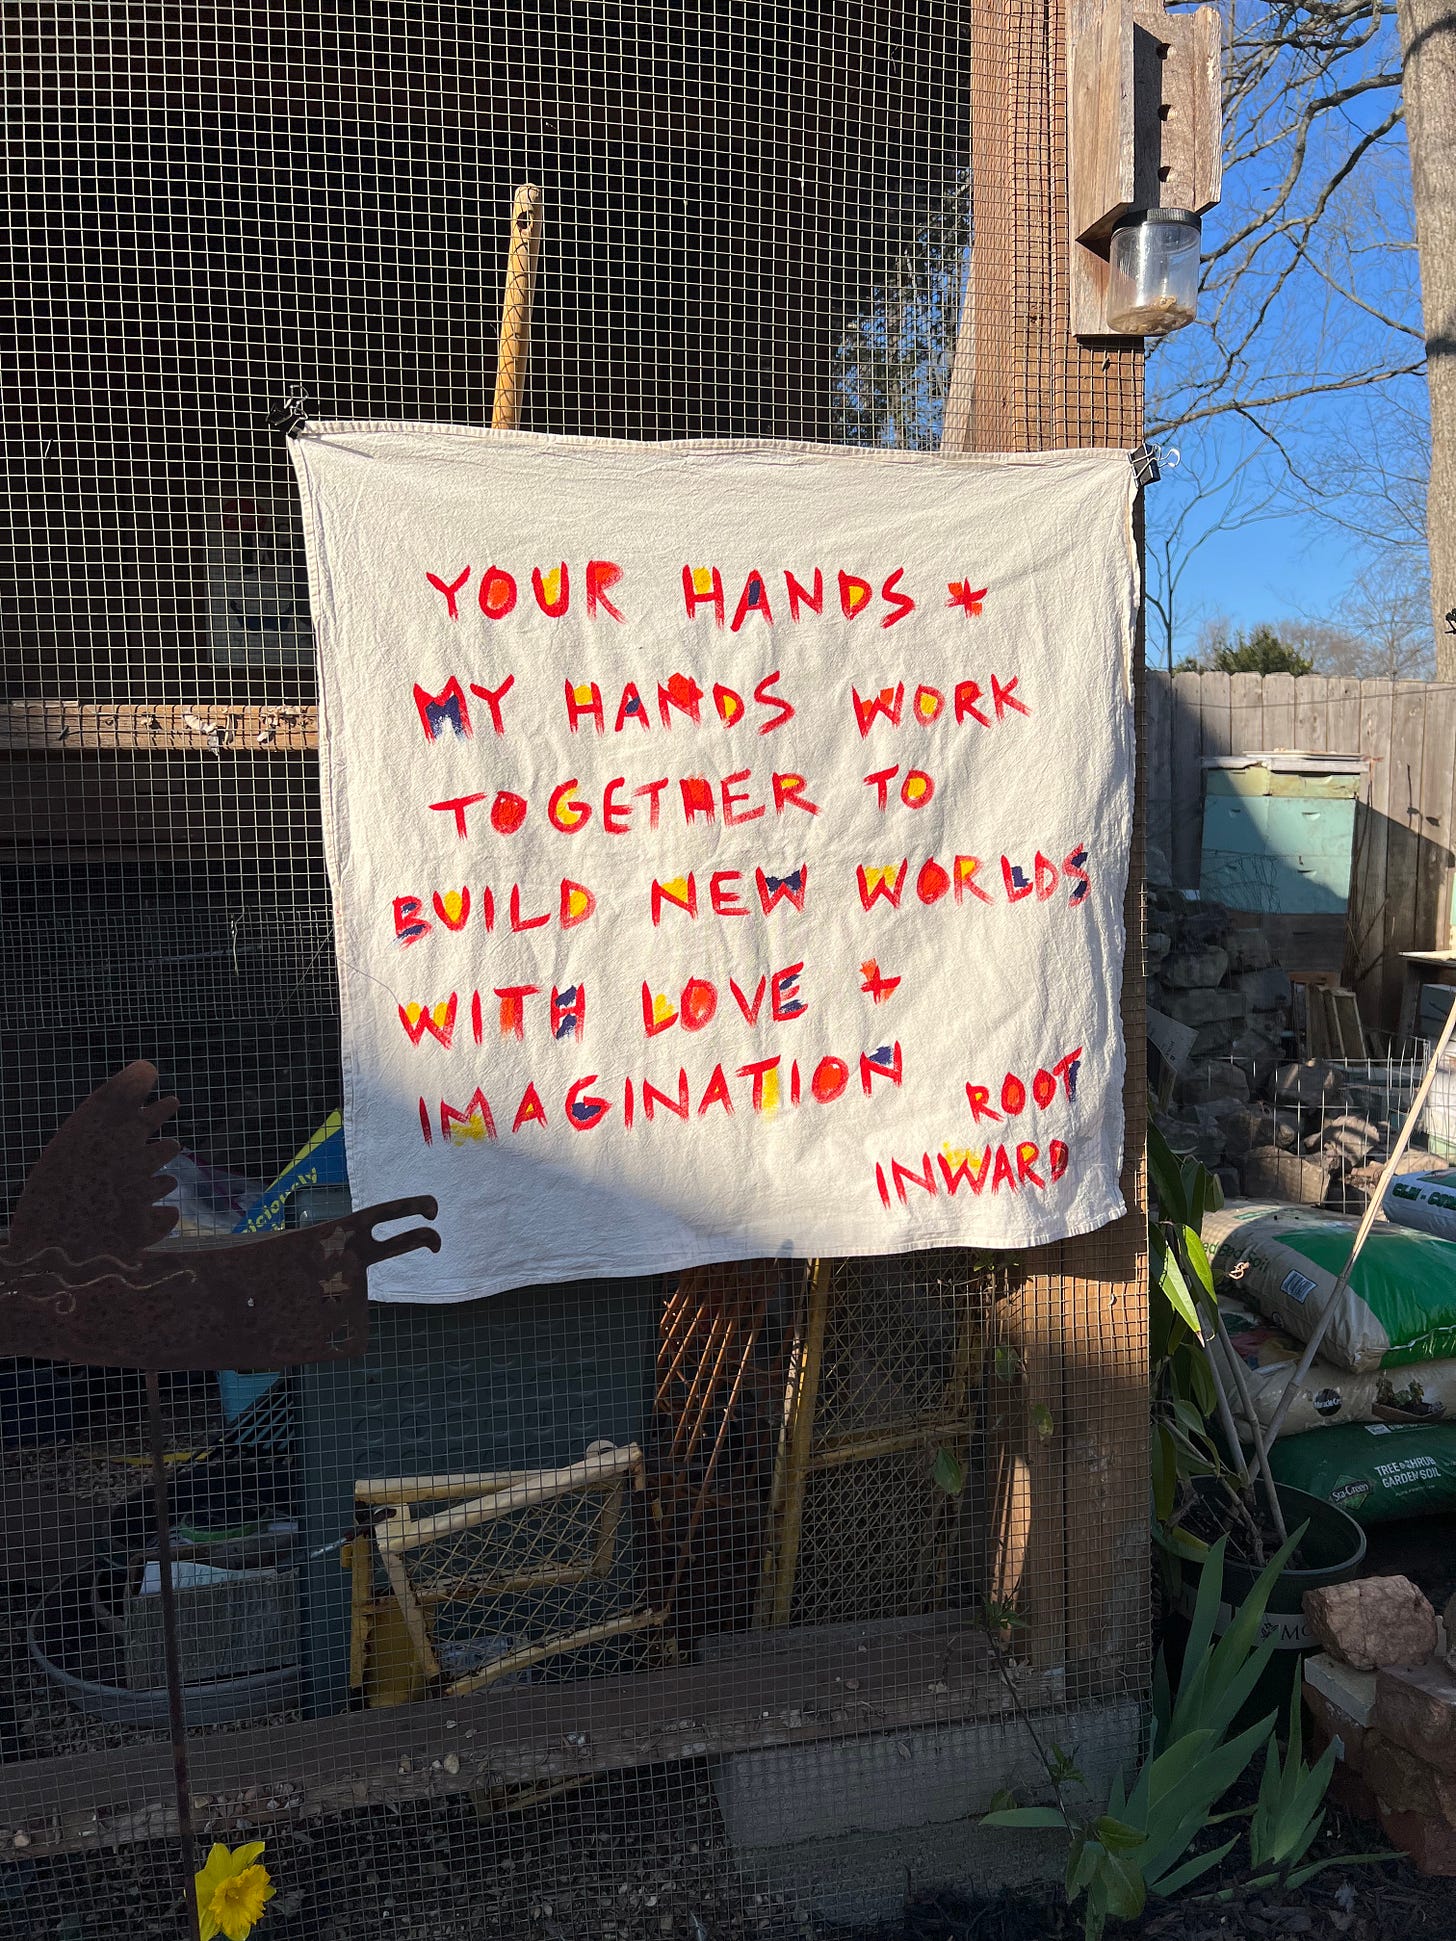 YOUR HANDS +
MY HANDS WORK
TOGETHER TO
BUILD NEW WORLDS
WITH LOVE +
IMAGINATION
ROOT
INWARD
TREE & SHRUB
GARDEN SOIL
Sta-Green